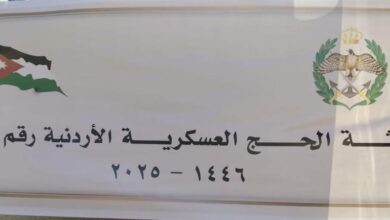 ـة الحج العسكرية الأردنية رقم
١٤٤٦ - ٢٠٢٥